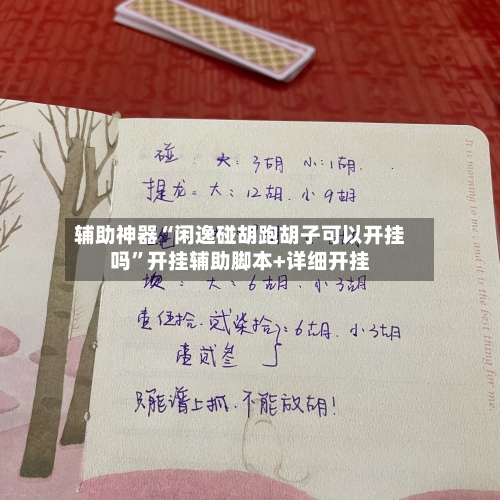 碰: 大:3胡 小:1胡.
提龙=大:12胡.小9胡
辅助神器“闲逸碰胡跑胡子可以开挂
吗”开挂辅助脚本+详细开挂
: 大=6胡.小3胡
壹伍拾.贰柒拾}=6胡.小3胡
壹贰叁
只能谱上抓.不能放胡!
It is morning to me, and it is the best thing for me